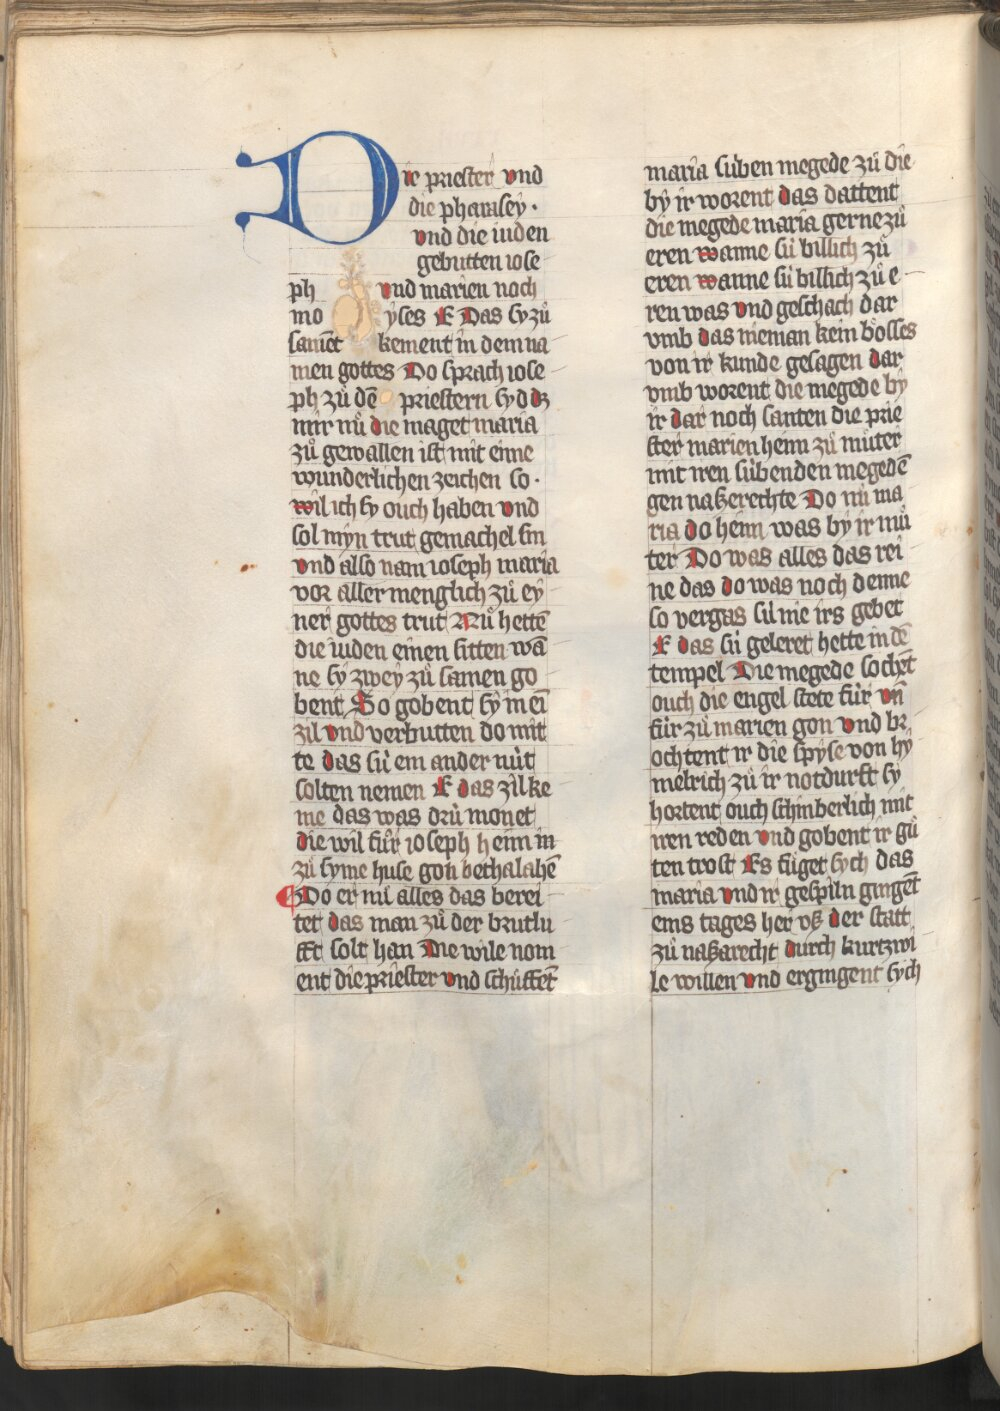 Die priester vnd
die pharasey ·
vnd die iuden
gebutten iose
ph vnd marien noch
moyses E Das sy zuͦ
samēt kement in dem na
men gottes Do sprach iose
ph zuͦ dē priestern syd dz
mir nuͦ die maget maria
zuͦ gewallen ist mit eime
wunderlichen zeichen so ·
wil ich sy ouch haben vnd
sol myn trut gemachel sin
vnd also nam ioseph maria
vor aller menglich zuͦ ey
ner gottes trut Nuͦ hettē
die iuden einen sitten wā
ne sy zwey zuͦ samen go
bent So gobent sy in ei
zil vnd verbutten do mit
te das suͥ em ander nuͥt
solten nemen E das zil ke
me das was druͥ monet
die wil fuͥr ioseph heim in
zuͦ syme huse gon bethalahē
Do er nu alles das berei
tet das man zuͦ der brutlu
fft solt han Die wile nom
ent die priester vnd schuͦffēt
maria suͥben megede zuͦ die
by ir worent das dattent
die megede maria gerne zuͦ
eren wanne suͥ billich zuͦ
eren wanne suͥ billich zuͦ e
ren was vnd geschach dar
vmb das nieman kein bosses
von ir kunde gesagen dar
vmb worent die megede by
ir dar noch santen die prie
ster marien heim zuͦ muͦter
mit iren suͥbenden megedē
gen naßerechte Do nu ma
ria do heim was by ir muͦ
ter Do was alles das rei
ne das do was noch denne
so vergas suͥ nie irs gebet
E das suͥ geleret hette in dē
tempel Die megede sochēt
ouch die engel stete fuͥr vn̄
fuͥr zuͦ marien gon vnd br
ochtent ir die spyse von hy
melrich zuͦ ir notdurft sy
hortent ouch schinberlich mit
iren reden vnd gobent ir guͦ
ten trost Es fuͥget sych das
maria vnd ir gespiln gingēt
eins tages her vß der statt
zuͦ naßarecht durch kurtzwi
le willen vnd ergingent sych